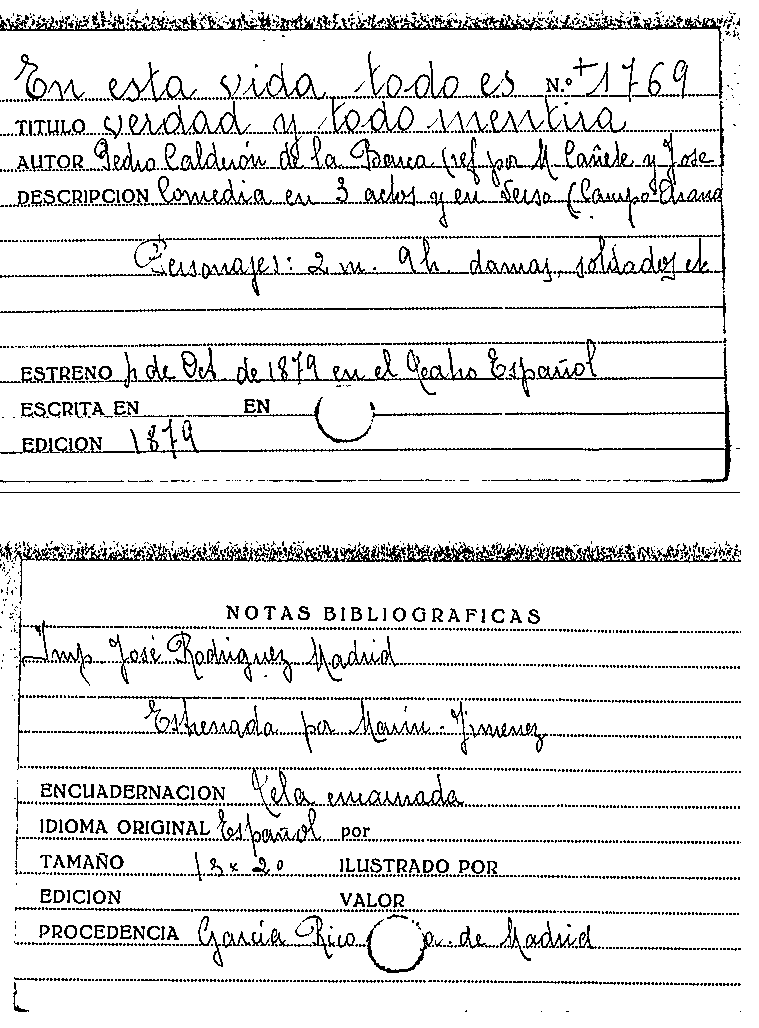 En esta vida todo es N.º +1769
TITULO verdad y todo mentira
AUTOR Pedro Calderón de la Barca (ref por M. Cañete y Jose
DESCRIPCION Comedia en 3 actos y en verso (Campo-Arana
Personajes: 2 m. 9 h. damas, soldados etc
ESTRENO de Oct de 1879 en el Teatro Español
ESCRITA EN EN
EDICION 1879
NOTAS BIBLIOGRAFICAS
Imp José Rodriguez Madrid
Estrenada por Marín-Jimenez
ENCUADERNACION Tela encarnada
IDIOMA ORIGINAL Español por
TAMAÑO 13 x 20 ILUSTRADO POR
EDICION VALOR
PROCEDENCIA García Rico a. de Madrid